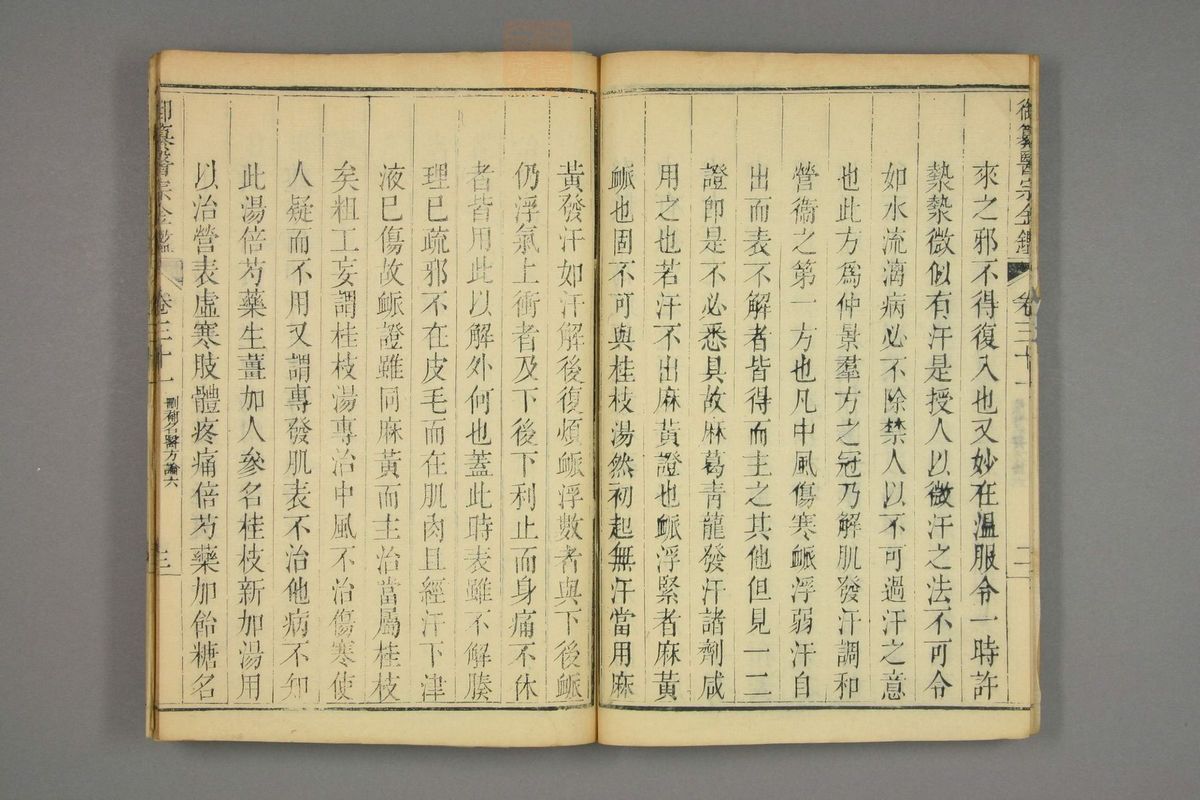 御纂醫宗金鑑 卷三十一 二
來之邪不得復入也又妙在溫服令一時許
漐漐微似有汗是授人以微汗之法不可令
如水流漓病必不除禁人以不可過汗之意
也此方爲仲景羣方之冠乃解肌發汗調和
營衞之第一方也凡中風傷寒䘑浮弱汗自
出而表不解者皆得而主之其他但見一二
證卽是不必悉具故麻葛靑龍發汗諸劑咸
用之也若汗不出麻黃證也䘑浮緊者麻黃
䘑也固不可與桂枝湯然初起無汗當用麻
黃發汗如汗解後復煩䘑浮數者與下後䘑
仍浮氣上衝者及下後下利止而身痛不休
者皆用此以解外何也蓋此時表雖不解腠
理已疏邪不在皮毛而在肌肉且經汗下津
液已傷故䘑證雖同麻黃而主治當屬桂枝
矣粗工妄謂桂枝湯專治中風不治傷寒使
人疑而不用又謂專發肌表不治他病不知
此湯倍芍藥生薑加人參名桂枝新加湯用
以治營表虛寒肢體疼痛倍芍藥加飴糖名
御纂醫宗金鑑 卷三十一 刪補名醫方論六 三